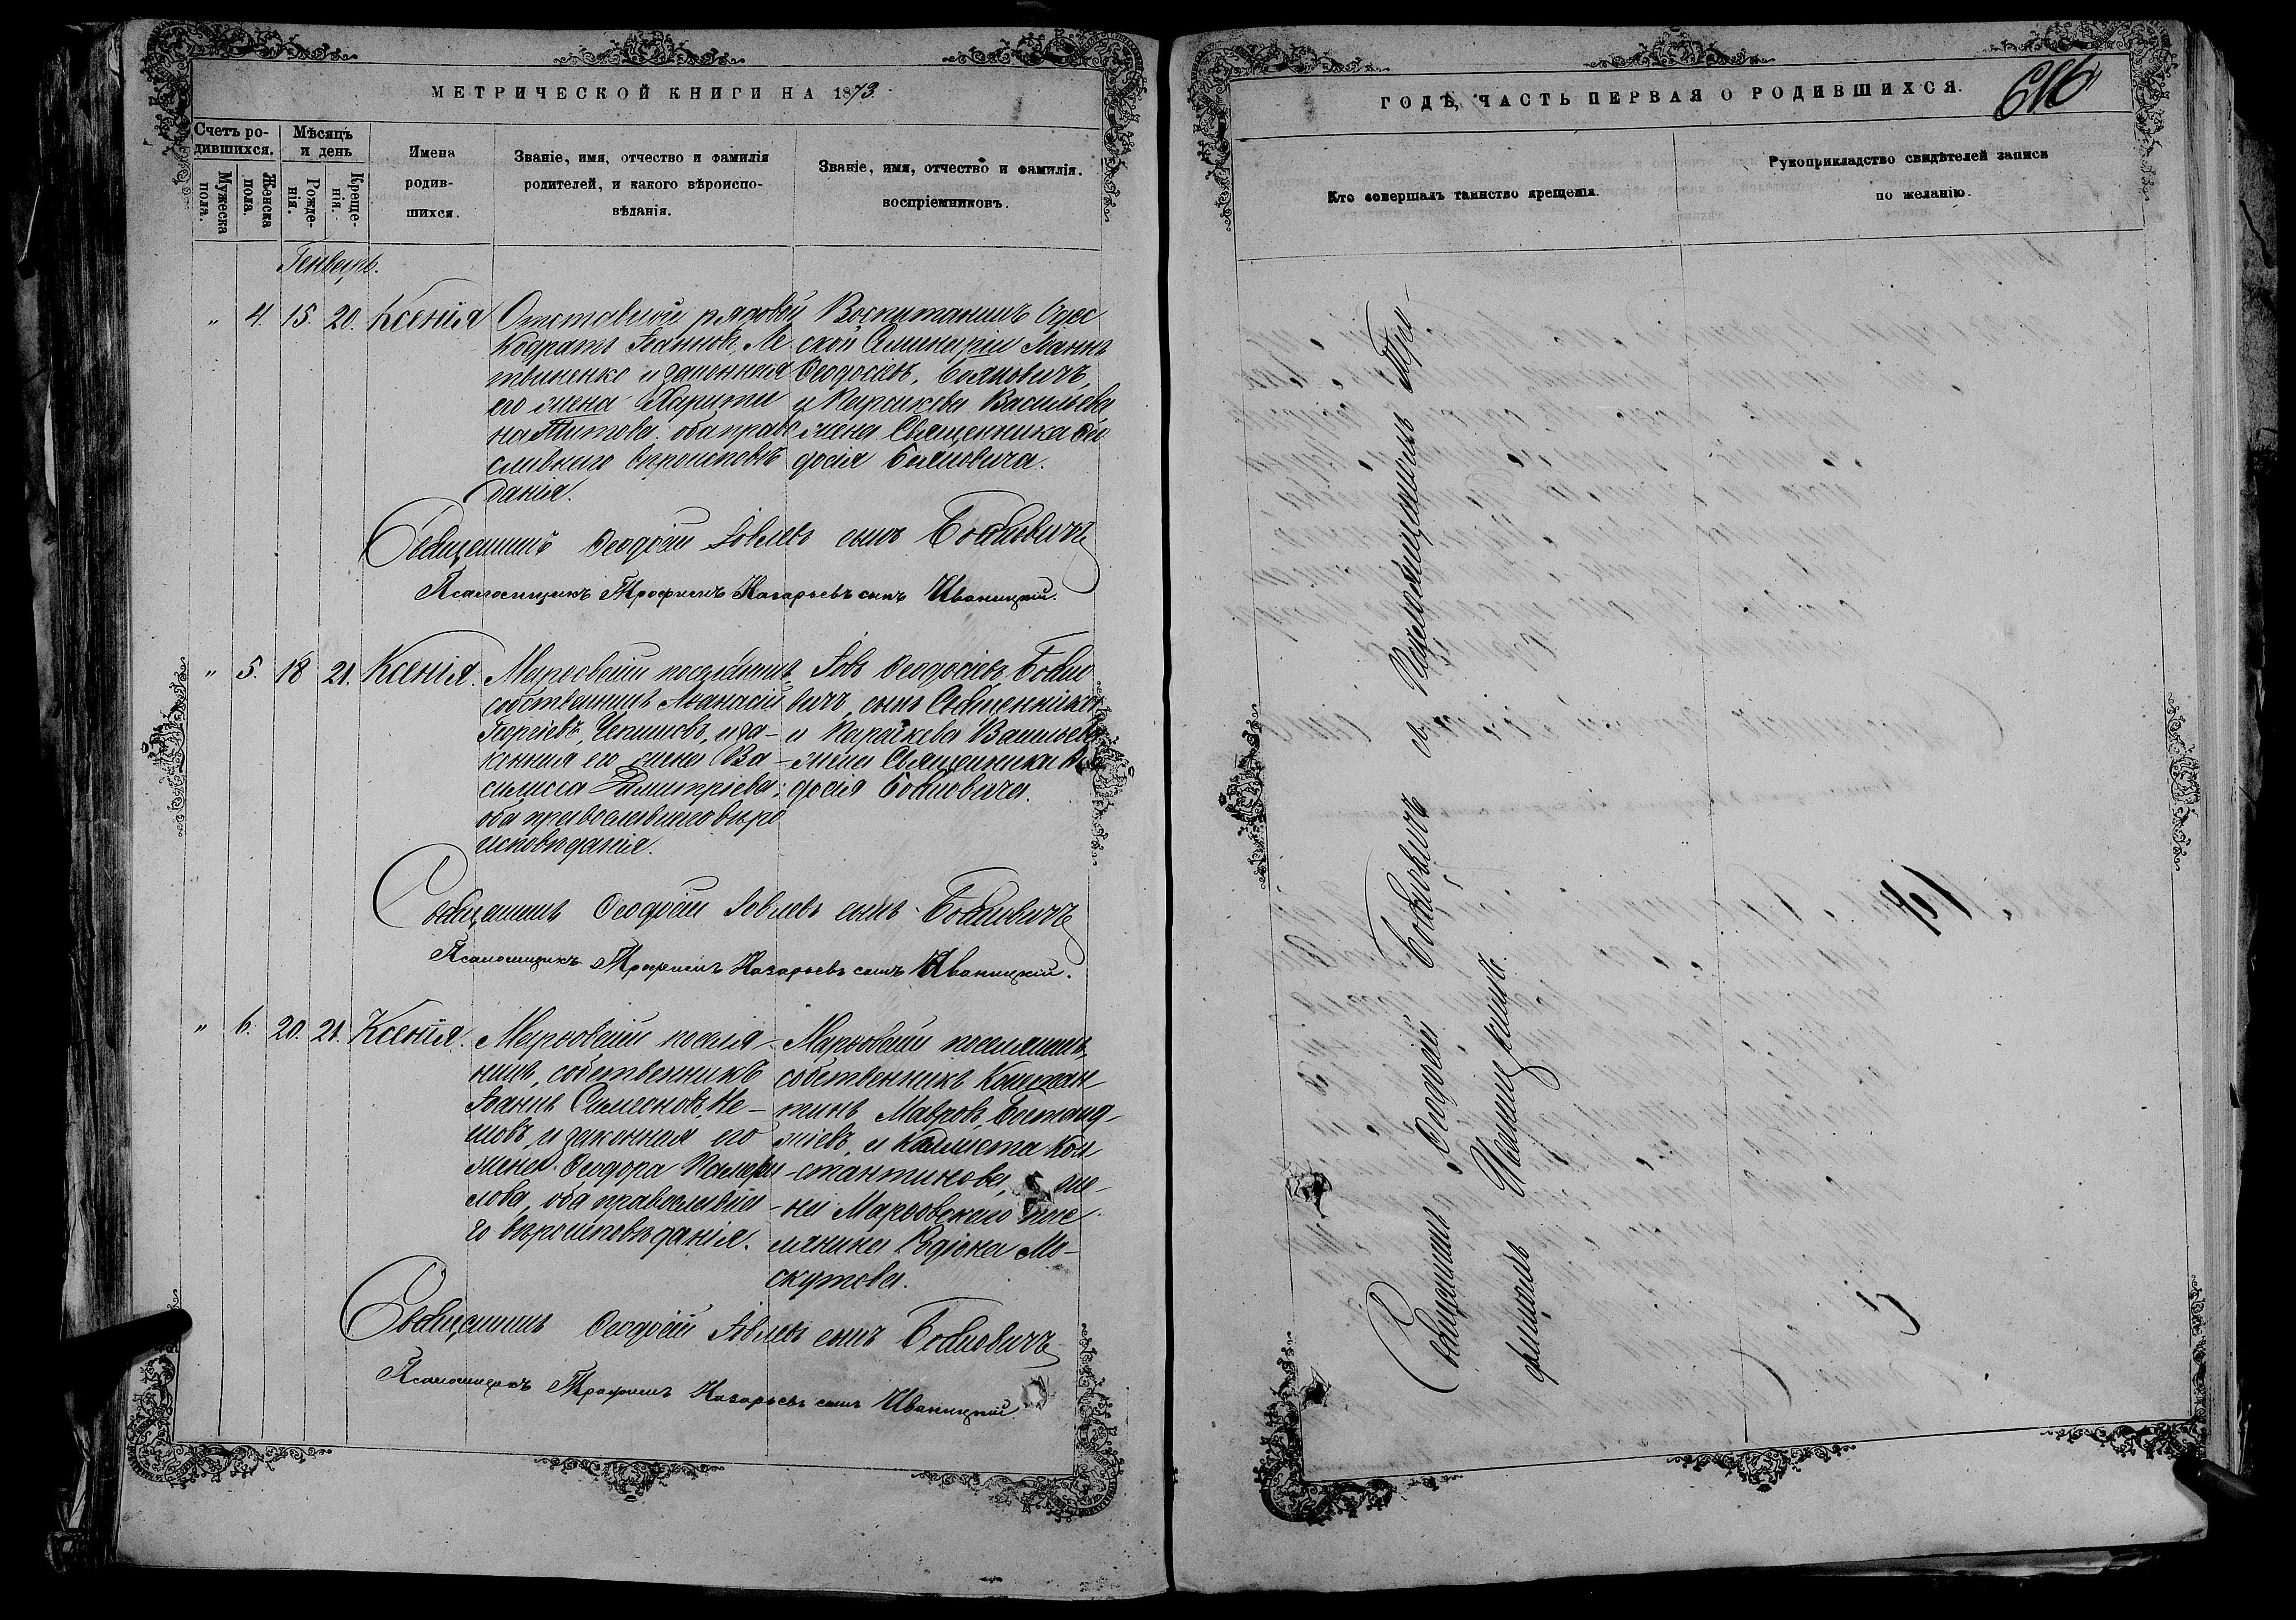 МЕТРИЧЕСКОЙ КНИГИ НА 1873.
Счетъ ро-
дившихся.
Мѣсяцъ
и день
Мужеска
пола.
Женска
пола.
Рожде-
нія.
Креще-
нія.
Имена
родив-
шихся.
Званіе, имя, отчество и фамилія
родителей, и какого вѣроиспо-
вѣданія.
Званіе, имя, отчество и фамилія.
воспріемниковъ.
Генварь.
" 4. 15. 20. Ксенія
Отставной рядовой
Кодратъ Іоанновъ, Ле
твиненко и законная
его жена Харити
на Титова. оба право
славнаго вѣроисповѣ
данія.
Воспитанникъ Одес
ской Семинаріи Іоаннъ
Ѳеодосіевъ, Бояновичъ,
и Параскева Васильева
жена Священника Ѳео
досія Бояновича.
Священникъ Ѳеодосій Іовлевъ сынъ Бояновичъ
Псаломщикъ Трофимъ Назарьевъ сынъ Иваницкій.
" 5. 18 21. Ксенія.
Марьовскій поселянинъ,
собственникъ Аѳанасій
Георгіевъ, и за-
конная его жена Ва-
силисса Димитріева,
оба православнаго вѣро
исповѣданія.
Іовъ Ѳеодосіевъ, Бояно
вичъ, сынъ Священника
и Параскева Васильева
жена Священника Ѳео
досія Бояновича.
Священникъ Ѳеодосій Іовлевъ сынъ Бояновичъ
Псаломщикъ Трофимъ Назарьевъ сынъ Иваницкій.
" 6. 20. 21. Ксенія.
Марьовскій поселя-
нинъ, собственникъ
Іоаннъ Симеоновъ, Не-
новъ, и законная его
жена Ѳеодора
оба православна
го вѣроисповѣданія.
Марьовскій поселянинъ,
собственникъ Констан
тинъ Мавровъ,
и Калиста Кон
стантинова, же-
на Марьовскаго посе
лянина Родіона Мо-
скутова.
Священникъ Ѳеодосій Іовлевъ сынъ Бояновичъ
Псаломщикъ Трофимъ Назарьевъ сынъ Иваницкій.
ГОДѢ, ЧАСТЬ ПЕРВАЯ О РОДИВШИХСЯ.
616
Кто совершалъ таинство крещенія.
Рукоприкладство свидѣтелей записи
по желанію.
Священникъ Ѳеодосій Бояновичъ съ Псаломщикомъ Тро
фимомъ Иваницкимъ.